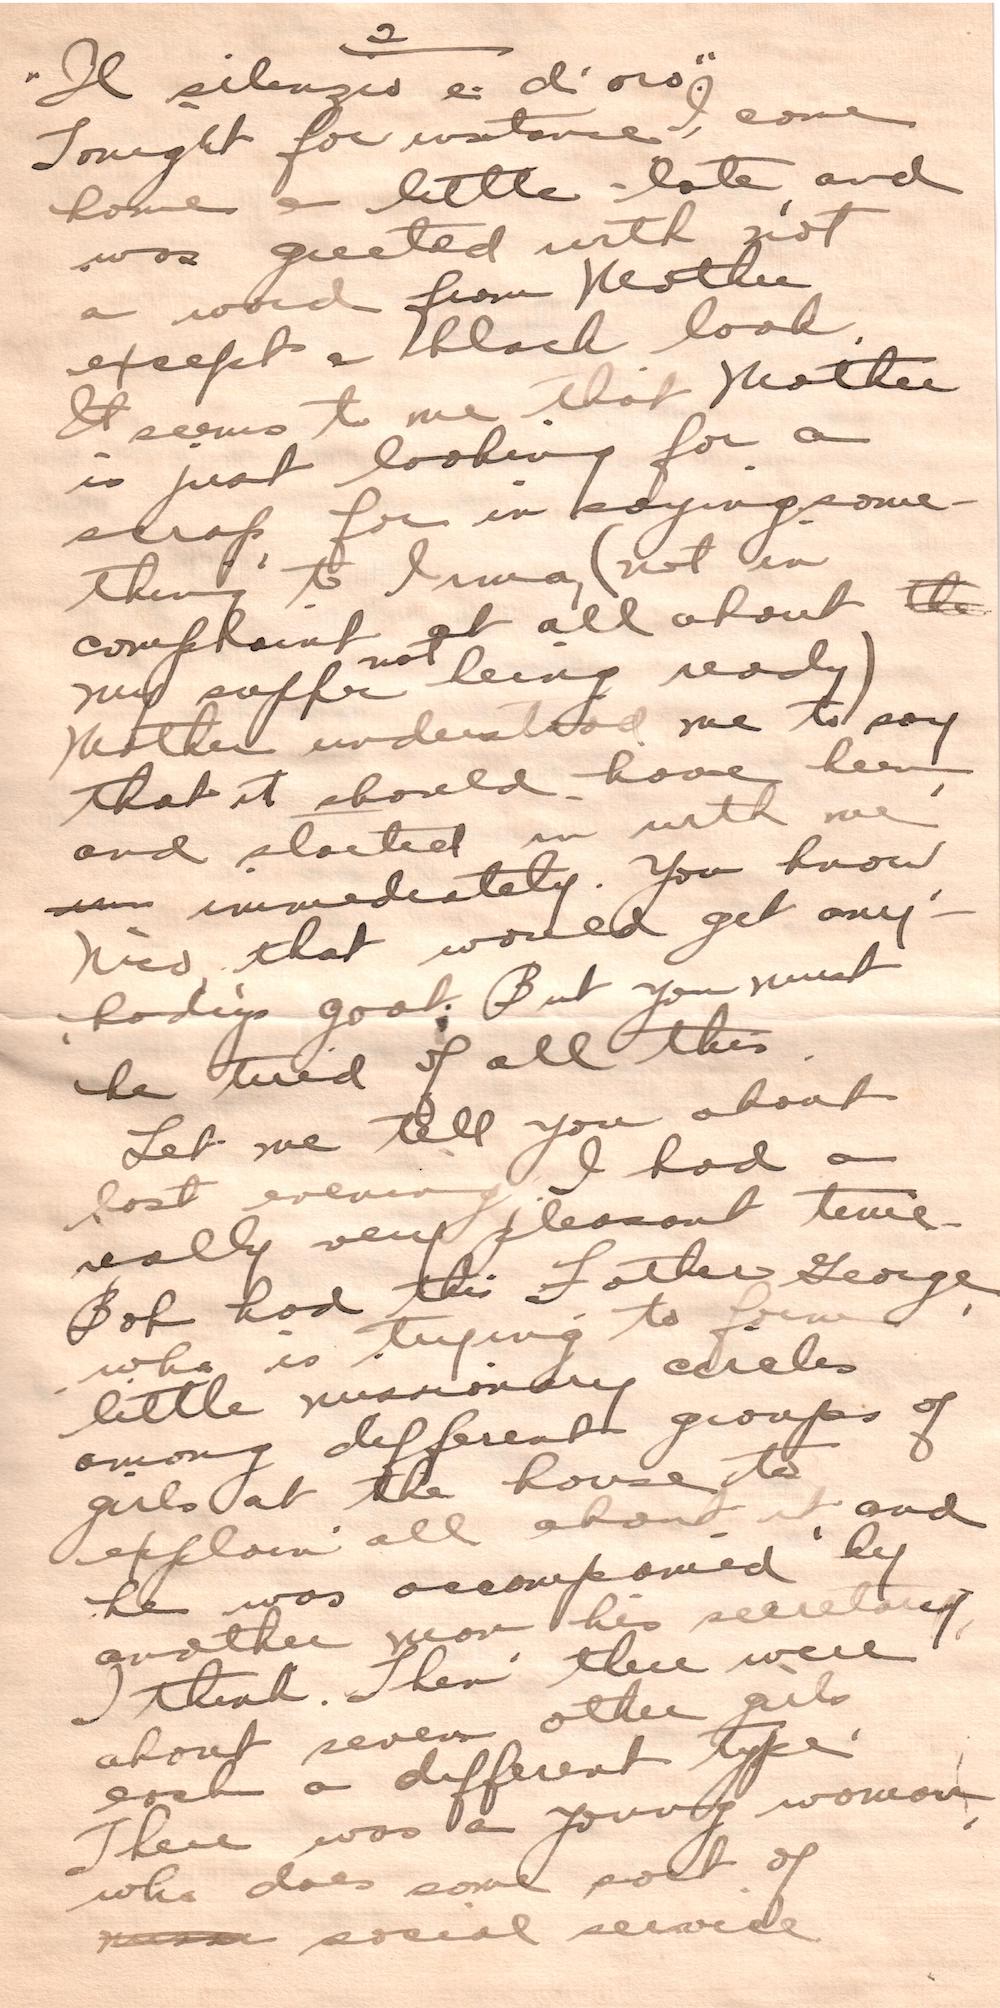 2
"Il silenzio e: d'oro"
Tonight for instance, I come
home a little late, and
was greeted with not
a word from Mother
except a black look.
It seems to me that Mother
is just looking for a
scrap, for in saying some-
thing to Irma, (not in
complaint at all about the
my supper not being ready)
Mother understood me to say
that it should have been,
and started in with me
immediately. You know
Nico, that would get any-
body's goat. But you must
be tired of all this.
Let me tell you about
last evening. I had a
really very pleasant time.
Bob had this Father George,
who is trying to form
little missionary circles
among different groups of
girls at the house to
explain all about it and
he was accompanied by
another man his secretary,
I think. Then there were
about seven other girls
each a different type.
There was a young woman,
who does some sort of
social service